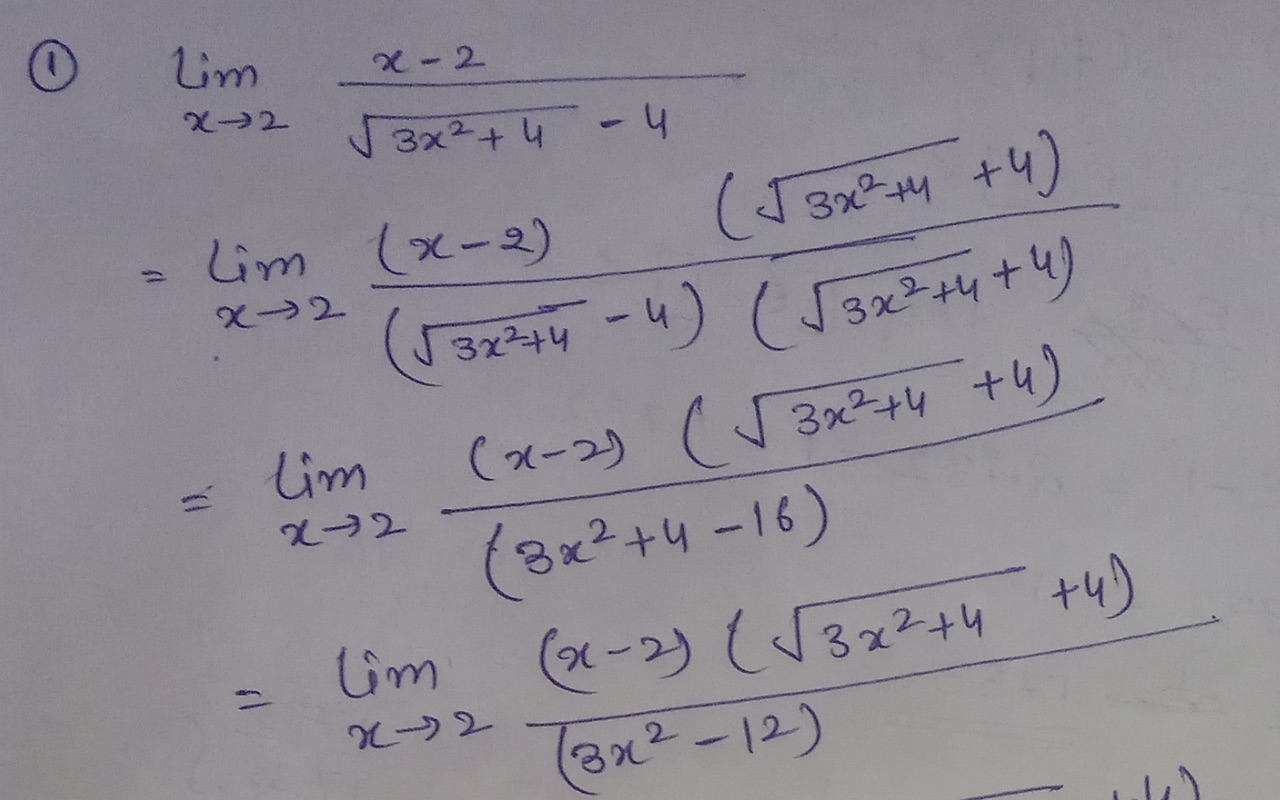 ① lim x→2 (x-2)/(√(3x²+4) - 4)
= lim x→2 ((x-2) (√(3x²+4) +4))/((√(3x²+4) -4) (√(3x²+4) +4))
= lim x→2 ((x-2) (√(3x²+4) +4))/(3x²+4-16)
= lim x→2 ((x-2) (√(3x²+4) +4))/(3x²-12)